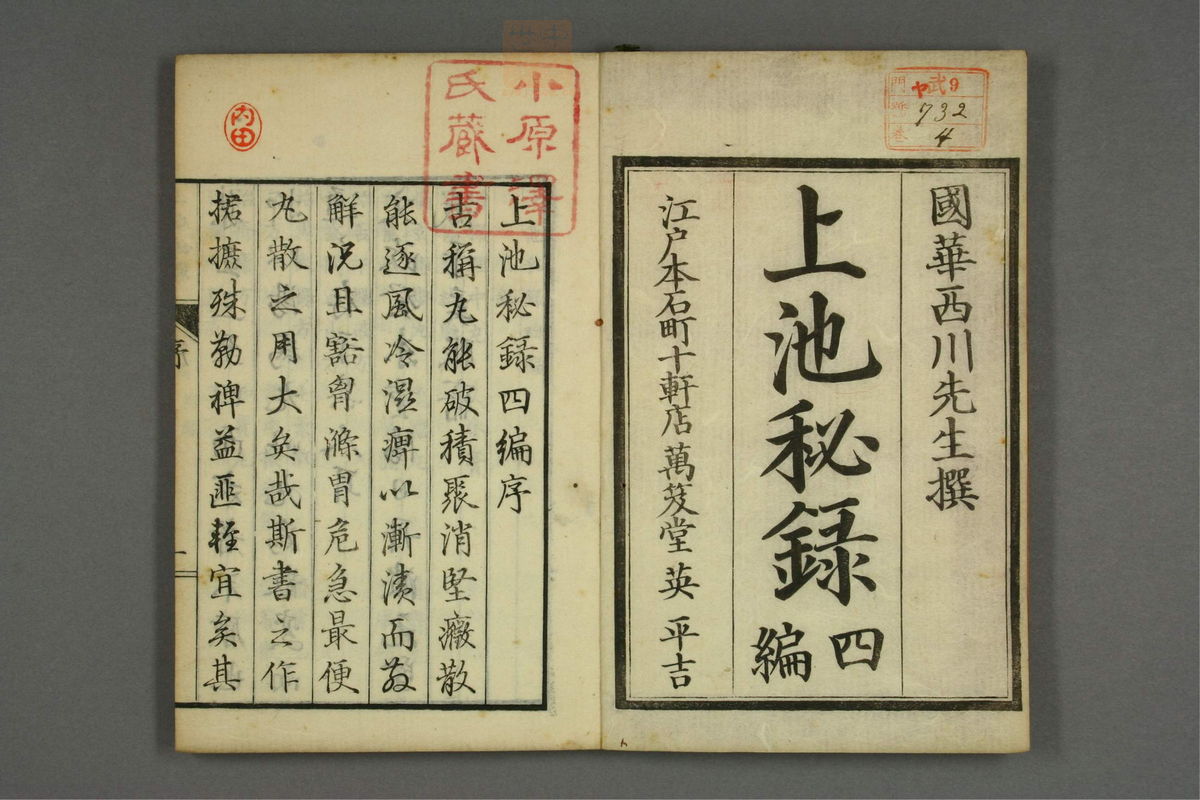 國華西川先生撰
上池秘録 四編
江戸本石町十軒店 萬笈堂 英 平吉
門 中武9
号 732
巻 4
小原澤
氏藏書
内田
上池秘録四編序
古稱丸能破積聚消堅癥散
能逐風冷濕痺以漸漬而致
解況且豁胷滌胃危急最便
丸散之用大矣哉斯書之作
捃摭殊勤裨益匪輊宜矣其
序